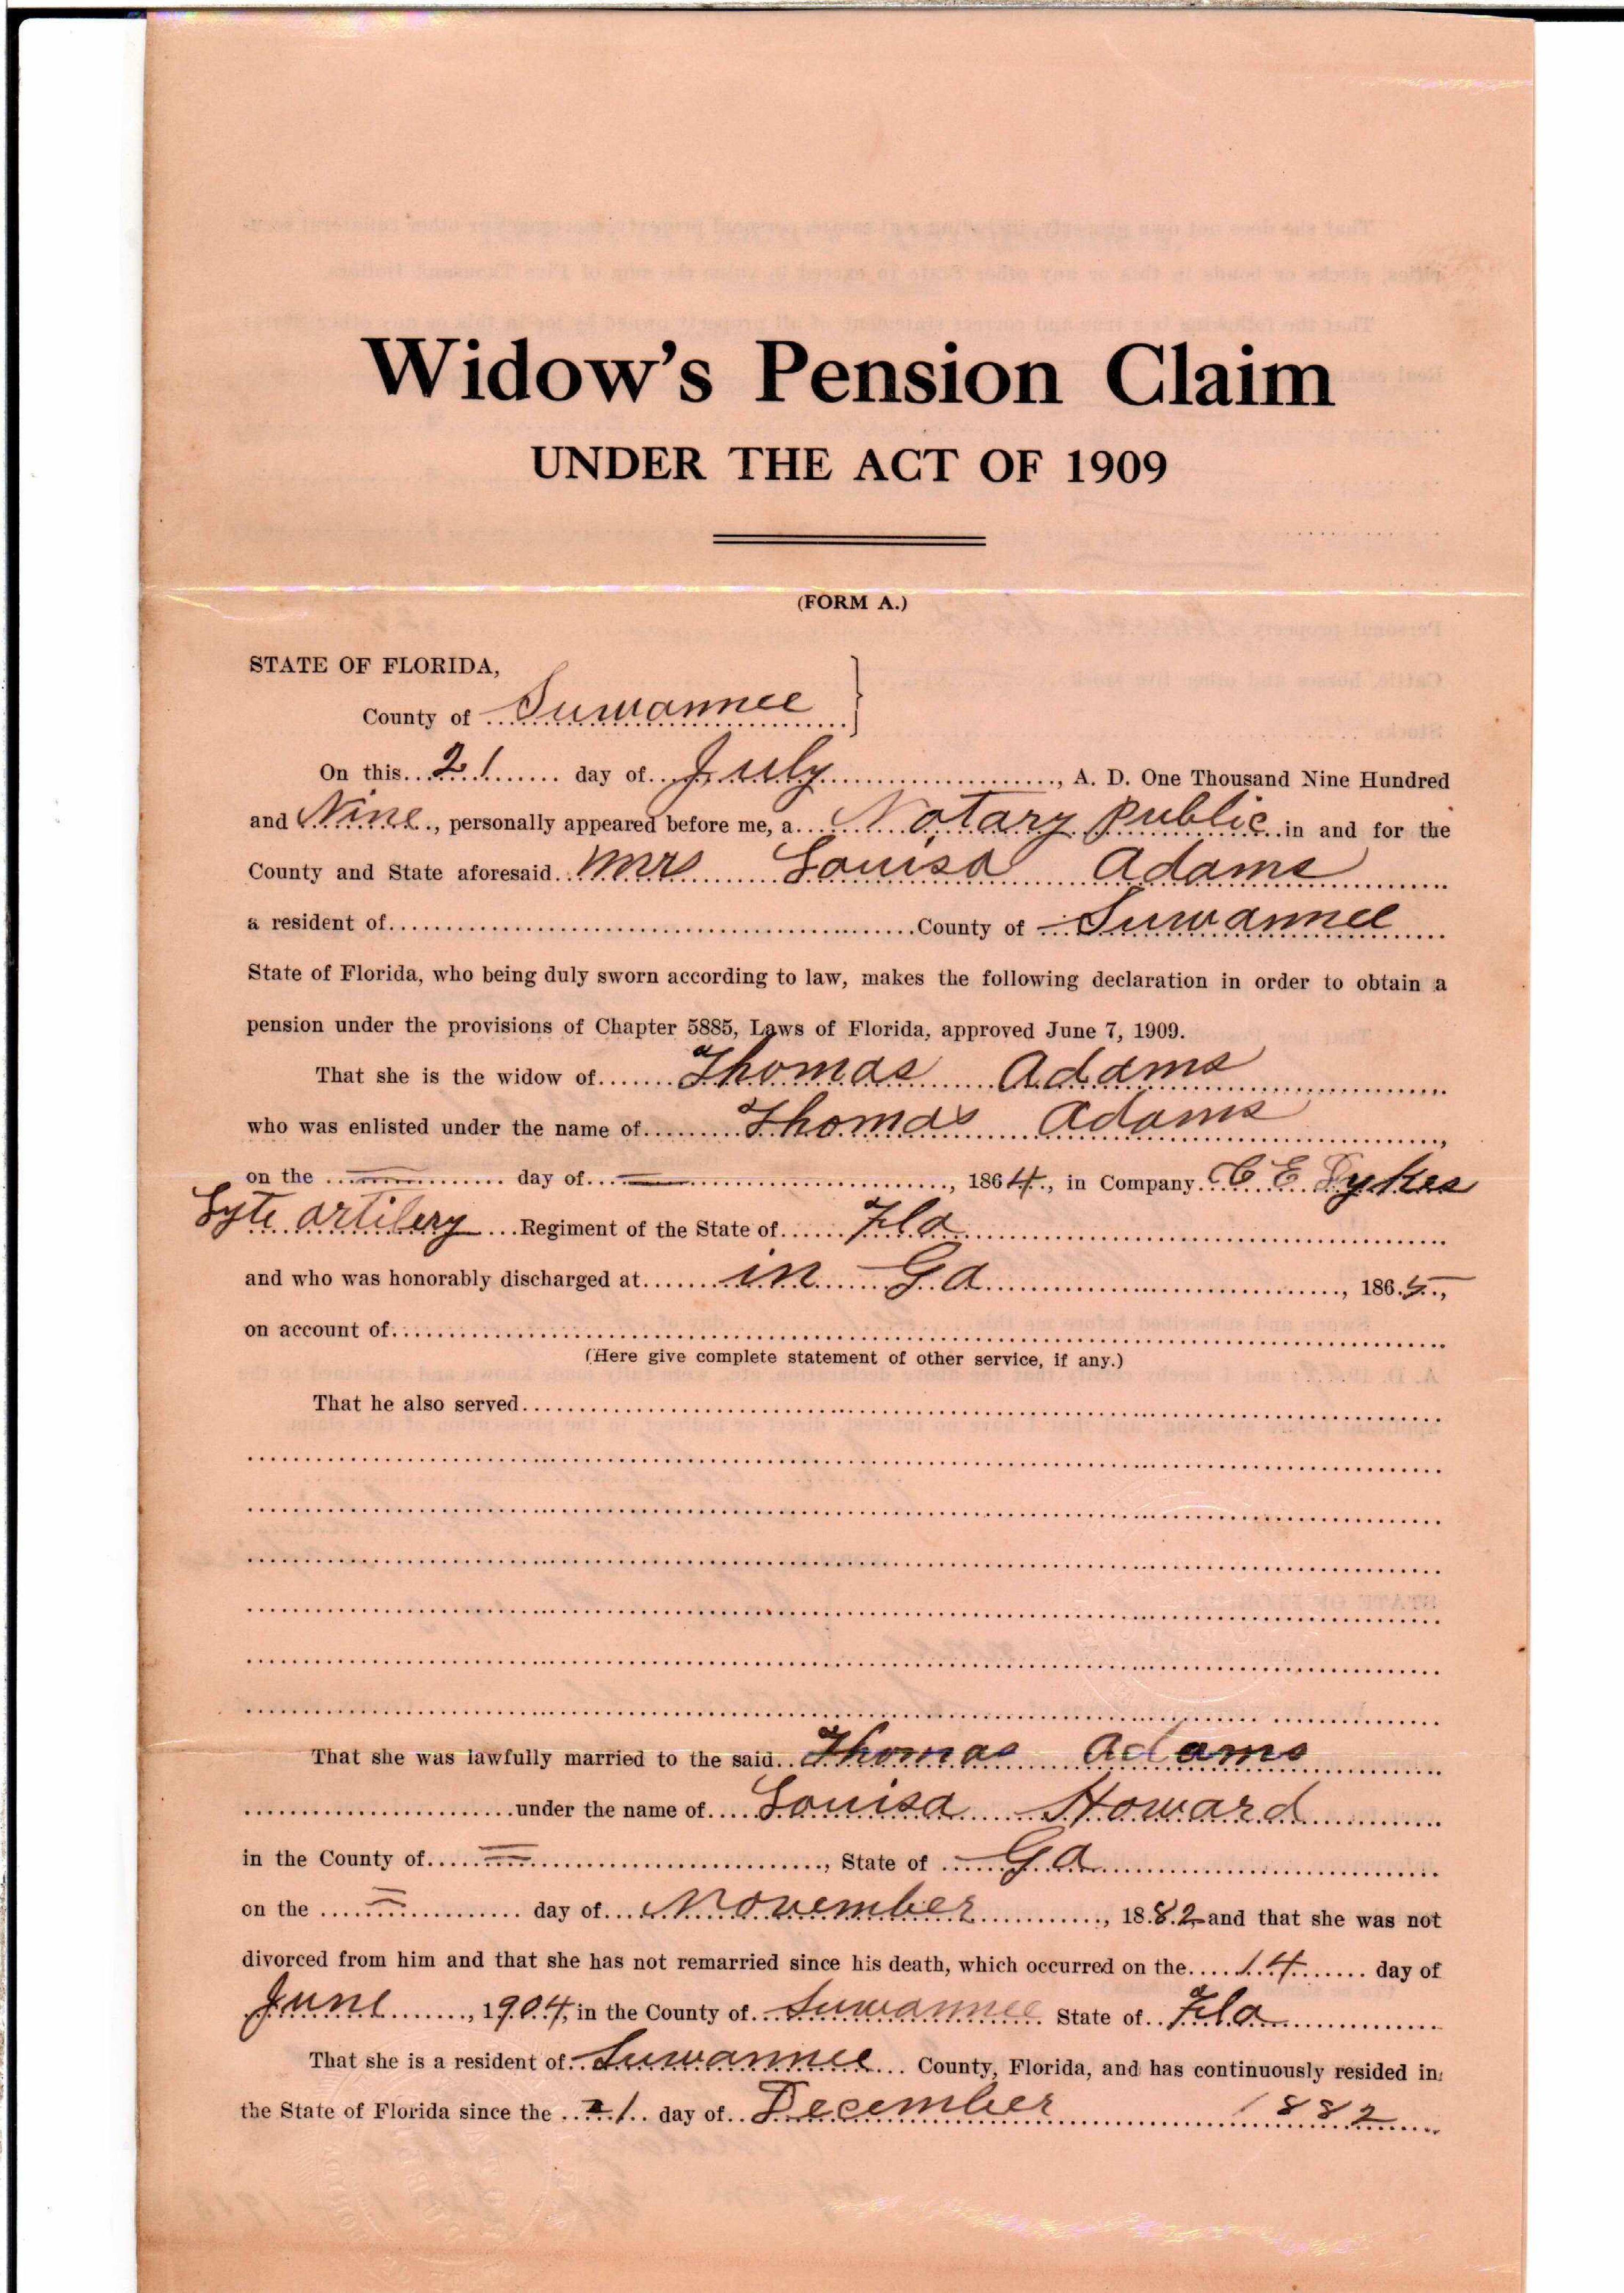 Widow's Pension Claim
UNDER THE ACT OF 1909
(FORM A.)
STATE OF FLORIDA,
County of Suwannee
On this 21 day of July, A. D. One Thousand Nine Hundred
and Nine, personally appeared before me, a Notary Public in and for the
County and State aforesaid Mrs Louisa Adams
a resident of County of Suwannee
State of Florida, who being duly sworn according to law, makes the following declaration in order to obtain a
pension under the provisions of Chapter 5885, Laws of Florida, approved June 7, 1909.
That she is the widow of Thomas Adams
who was enlisted under the name of Thomas Adams,
on the — day of —, 1864, in Company C E Dykes
Lyte artilery Regiment of the State of Fla
and who was honorably discharged at in Ga, 1865,
on account of
(Here give complete statement of other service, if any.)
That he also served
That she was lawfully married to the said Thomas Adams
under the name of Louisa Howard
in the County of =, State of Ga
on the = day of November, 1882 and that she was not
divorced from him and that she has not remarried since his death, which occurred on the 14 day of
June, 1904, in the County of Suwannee State of Fla
That she is a resident of Suwannee County, Florida, and has continuously resided in
the State of Florida since the 1 day of December 1882